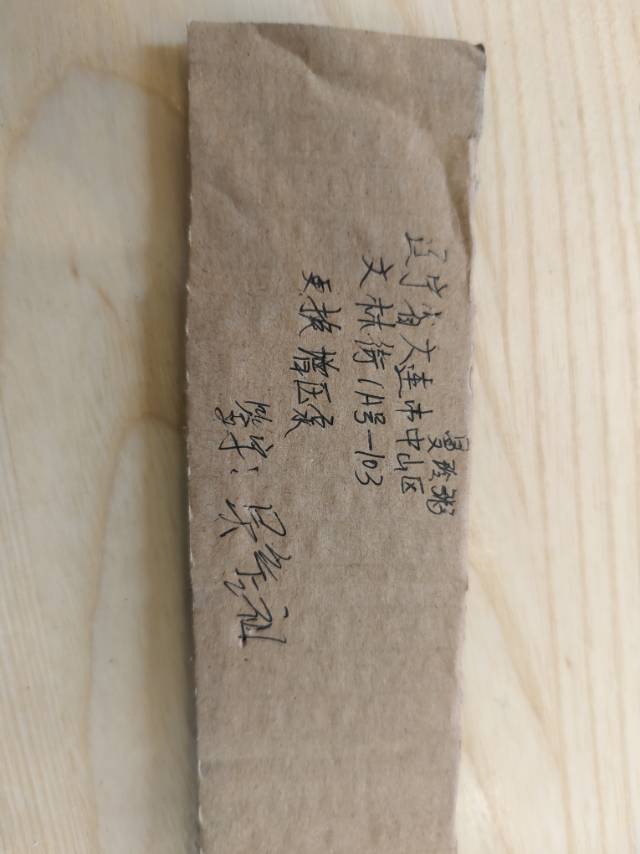 曼玲粥
辽宁省大连市中山区
文林街1A号-103
更换增压泵
签字：吴